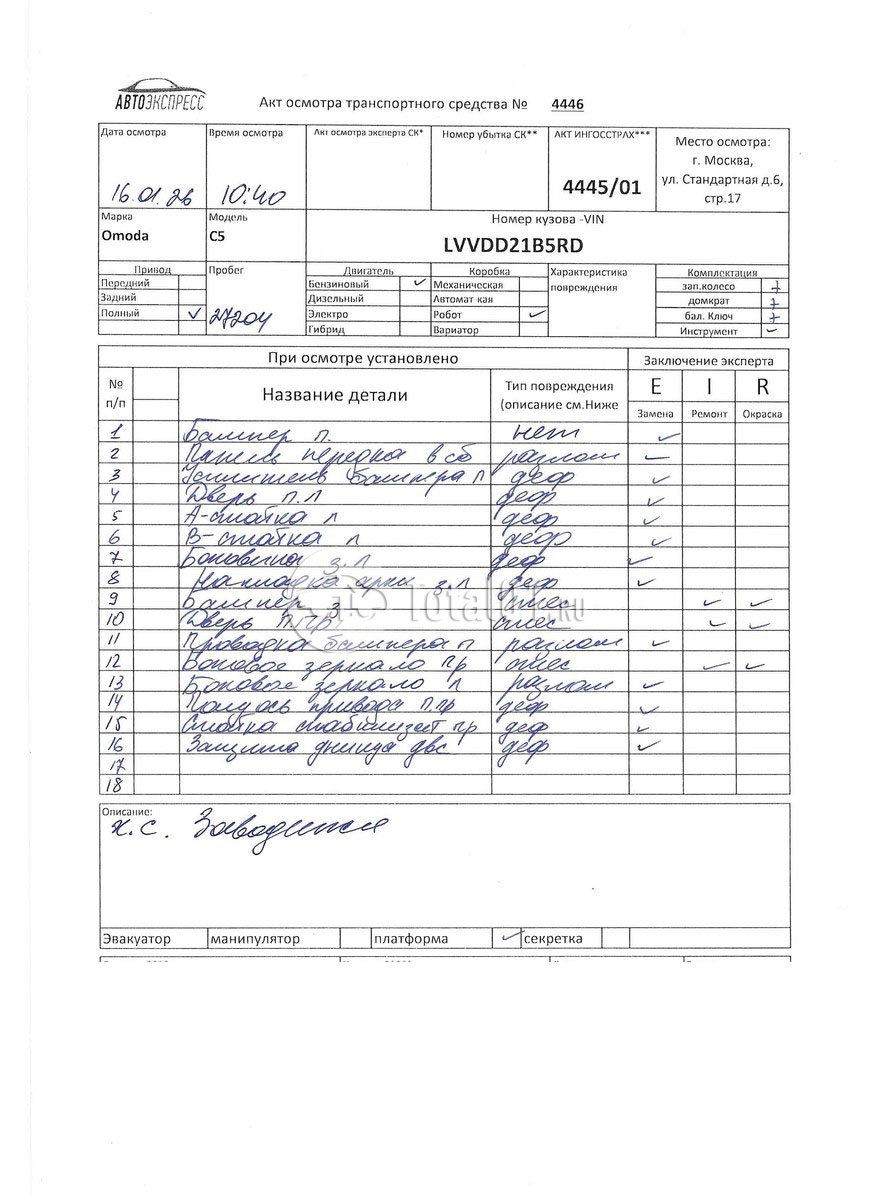 АВТОЭКСПРЕСС
Акт осмотра транспортного средства № 4446
Дата осмотра
16.01.26
Время осмотра
10:40
Акт осмотра эксперта СК*
Номер убытка СК**
АКТ ИНГОССТРАХ***
4445/01
Место осмотра:
г. Москва,
ул. Стандартная д.6,
стр.17
Марка
Omoda
Модель
C5
Номер кузова -VIN
LVVDD21B5RD
Привод
Передний
Задний
Полный ✓
Пробег
27204
Двигатель
Бензиновый ✓
Дизельный
Электро
Гибрид
Коробка
Механическая
Автомат-кая
Робот ✓
Вариатор
Характеристика
повреждения
Комплектация
зап.колесо +
домкрат +
бал. Ключ +
Инструмент -
При осмотре установлено
Заключение эксперта
№
п/п
Название детали
Тип повреждения
(описание см.Ниже
E I R
Замена Ремонт Окраска
1 Бампер п. нет ✓
2 Панель передка в сб разлом ✓
3 Усилитель бампера п деф ✓
4 Дверь п.л деф ✓
5 А-стойка л деф ✓
6 В-стойка л деф ✓
7 Боковина з.л деф ✓
8 Накладка арки з.л деф ✓
9 Бампер з ✓ ✓
10 Дверь п.пр ✓ ✓
11 Проводка бампера п разлом ✓
12 Боковое зеркало пр ✓ ✓
13 Боковое зеркало л разлом ✓
14 Полуось привода п.пр деф ✓
15 Стойка пр деф ✓
16 Защита днища двс деф ✓
17
18
Total01.RU
Описание:
х.с. Заводится
Эвакуатор манипулятор платформа ✓ секретка